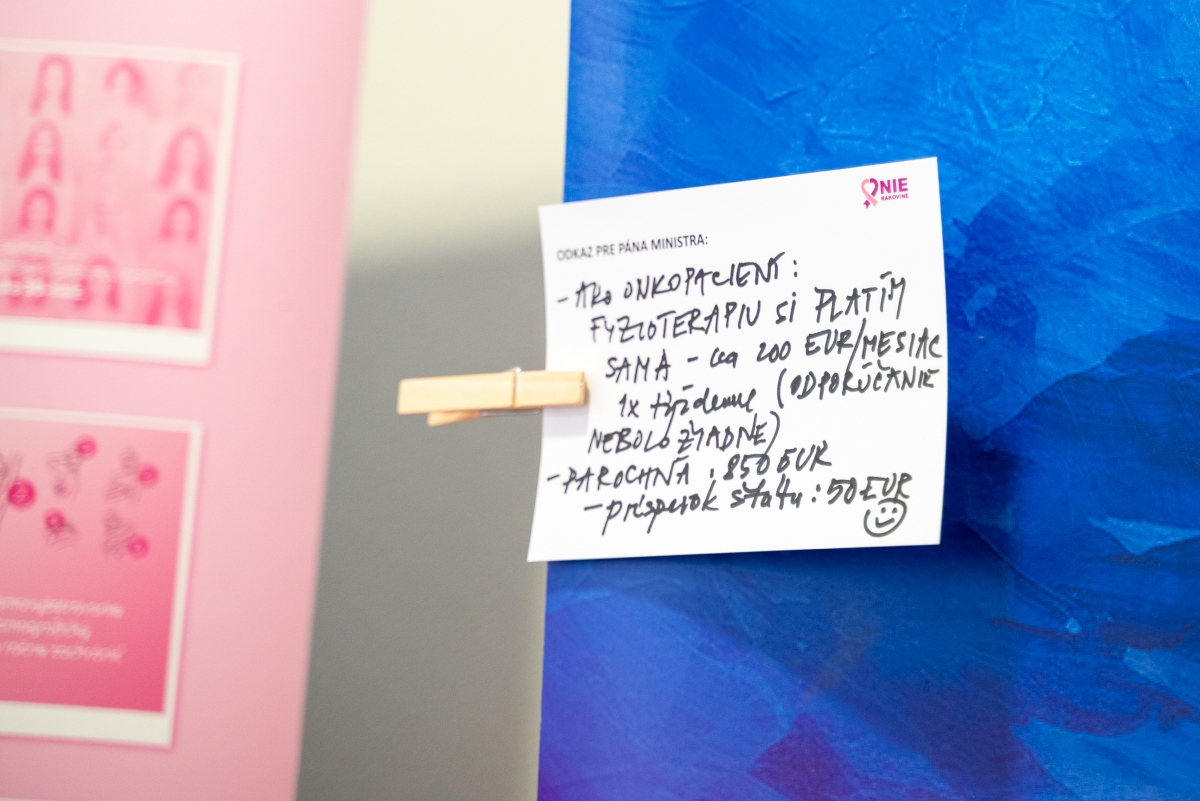 NIE
RAKOVINE
ODKAZ PRE PÁNA MINISTRA:
- AKO ONKOPACIENT:
FYZIOTERAPIU SI PLATÍM
SAMA - cca 200 EUR/MESIAC
1x týždenne (ODPORÚČANIE
NEBOLO ŽIADNE)
- PAROCHŇA : 850 EUR
- príspevok štátu : 50 EUR